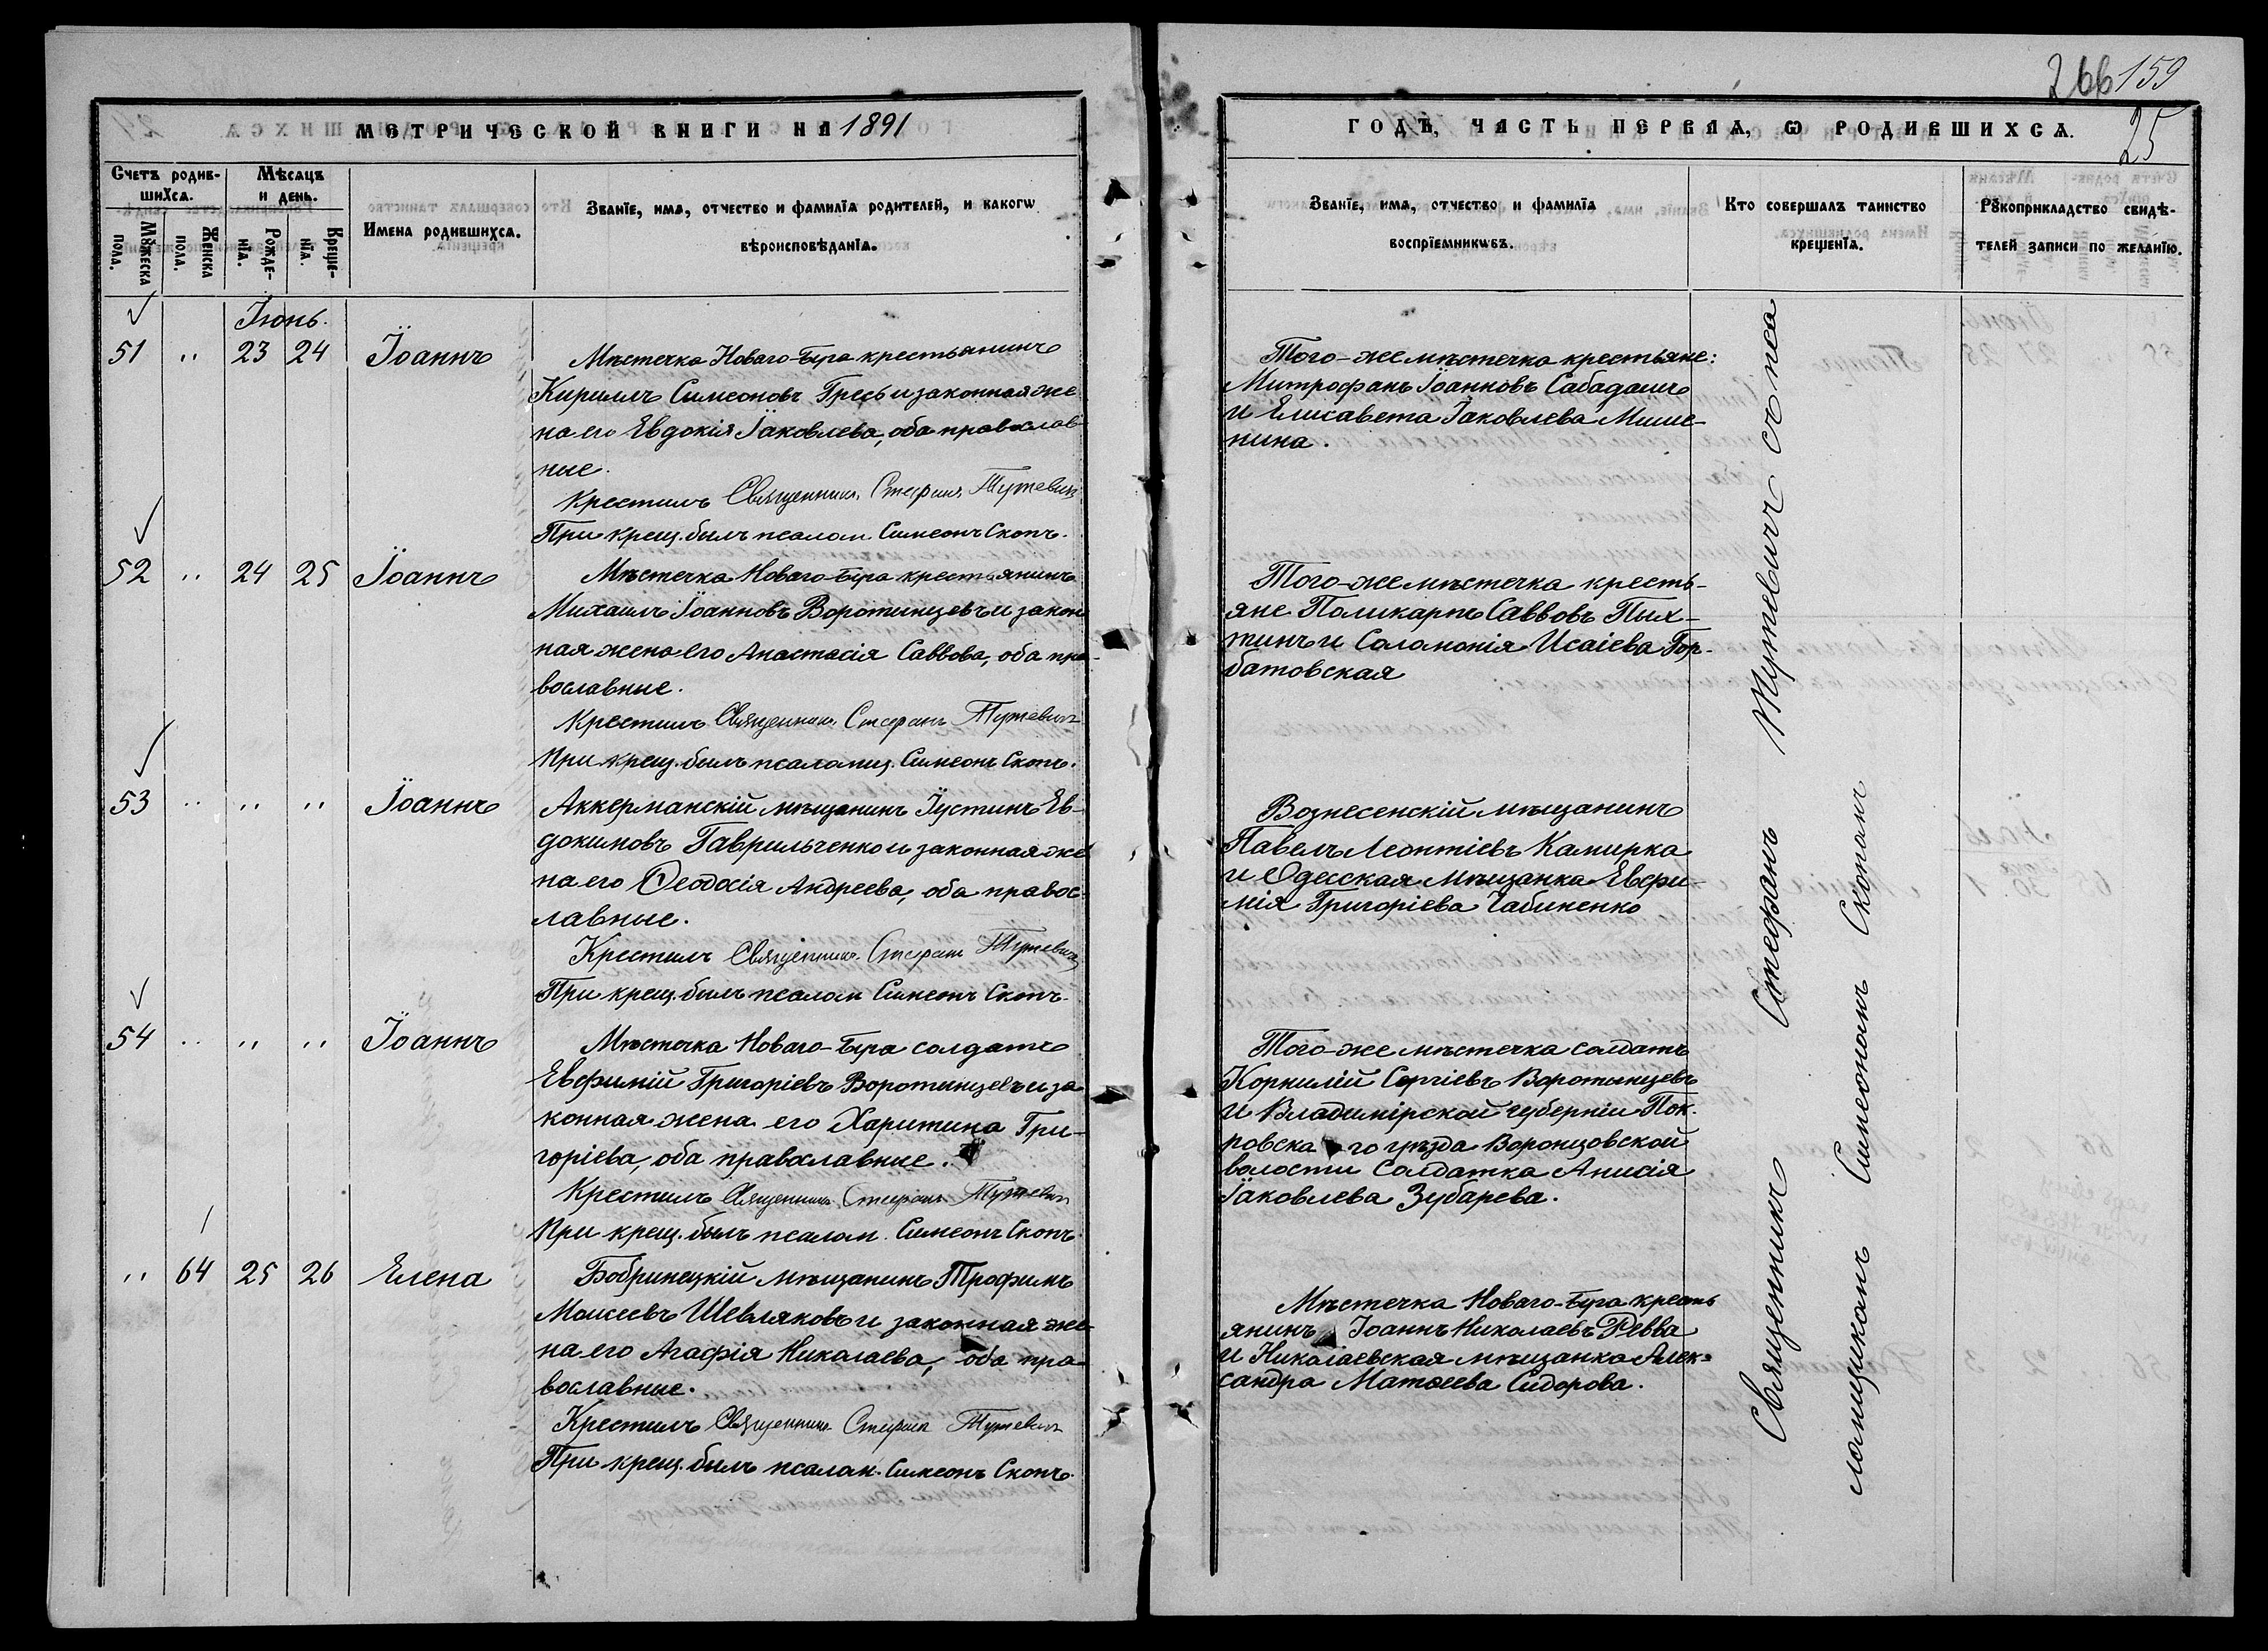 266 159
25
МЕТРИЧЕСКОЙ КНИГИ НА 1891
ГОДЪ, ЧАСТЬ ПЕРВАЯ, Ѡ РОДИВШИХСѦ.
Счетъ родив-
шихсѧ.
Мꙋжеска пола.
Женска пола.
Мѣсѧцъ
и день.
Рожде-
нїѧ.
Креще-
нїѧ.
Имена родившихсѧ.
Званїе, имѧ, отчество и фамилїѧ родителей, и какогѡ
вѣроисповѣданїѧ.
Званїе, имѧ, отчество и фамилїѧ
воспрїемникѡвъ.
Кто совершалъ таинство
крещенїѧ.
Рꙋкоприкладство свидѣ-
телей записи по желанїю.
Іюнь.
51 " 23 24 Іоаннъ
Мѣстечка Новаго-Буга крестьянинъ
Кириллъ Симеоновъ Гресь и законная же
на его Евдокія Іаковлева, оба православ
ные.
Крестилъ Священникъ Стефанъ Тутевич
При крещ. былъ псалом Симеонъ Скопъ.
Того-же мѣстечка крестьяне:
Митрофанъ Іоанновъ Сабадашъ
и Елисавета Іаковлева Мише-
нина.
52 " 24 25 Іоаннъ
Мѣстечка Новаго-Буга крестьянинъ
Михаилъ Іоанновъ Воротынцевъ и закон
ная жена его Анастасія Саввова, оба пра-
вославные.
Крестилъ Священникъ Стефанъ Тутевич
При крещ. былъ псаломщ. Симеонъ Скопъ.
Того-же мѣстечка кресть-
яне Поликарпъ Саввовъ Пых-
тинъ и Соломонія Исаіева Гор-
батовская
53 " " " Іоаннъ
Аккерманскій мѣщанинъ Іустинъ Ев-
докимовъ Гаврильченко и законная же
на его Ѳеодосія Андреева, оба правос-
лавные.
Крестилъ Священникъ Стефанъ Тутевич
При крещ. былъ псалом Симеонъ Скопъ.
Вознесенскій мѣщанинъ
Павелъ Леонтіевъ Камирка
и Одесская мѣщанка Евфи-
мія Григоріева Чабиненко
54 " " " Іоаннъ
Мѣстечка Новаго-Буга солдатъ
Евфимій Григоріевъ Воротынцевъ и за
конная жена его Харитина Гри-
горіева, оба православные.
Крестилъ Священникъ Стефанъ Тутевич
При крещ. былъ псалом. Симеонъ Скопъ.
Того-же мѣстечка солдатъ
Корнилій Сергіевъ Воротынцевъ
и Владимірской губерніи Пок-
ровска го уѣзда Воронцовской
волости Солдатка Анисія
Іаковлева Зубарева.
" 64 25 26 Елена
Бобринецкій мѣщанинъ Трофимъ
Моисеевъ Шевляковъ и законная же-
на его Агафія Николаева, оба пра-
вославные.
Крестилъ Священникъ Стефанъ Тутевич
При крещ. былъ псалом. Симеонъ Скопъ.
Мѣстечка Новаго-Буга кресть
янинъ Іоаннъ Николаевъ Ревва
и Николаевская мѣщанка Алек-
сандра Матѳеева Сидорова.
Священникъ Стефанъ Тутевичъ съ пса
ломщикомъ Симеономъ Скопомъ